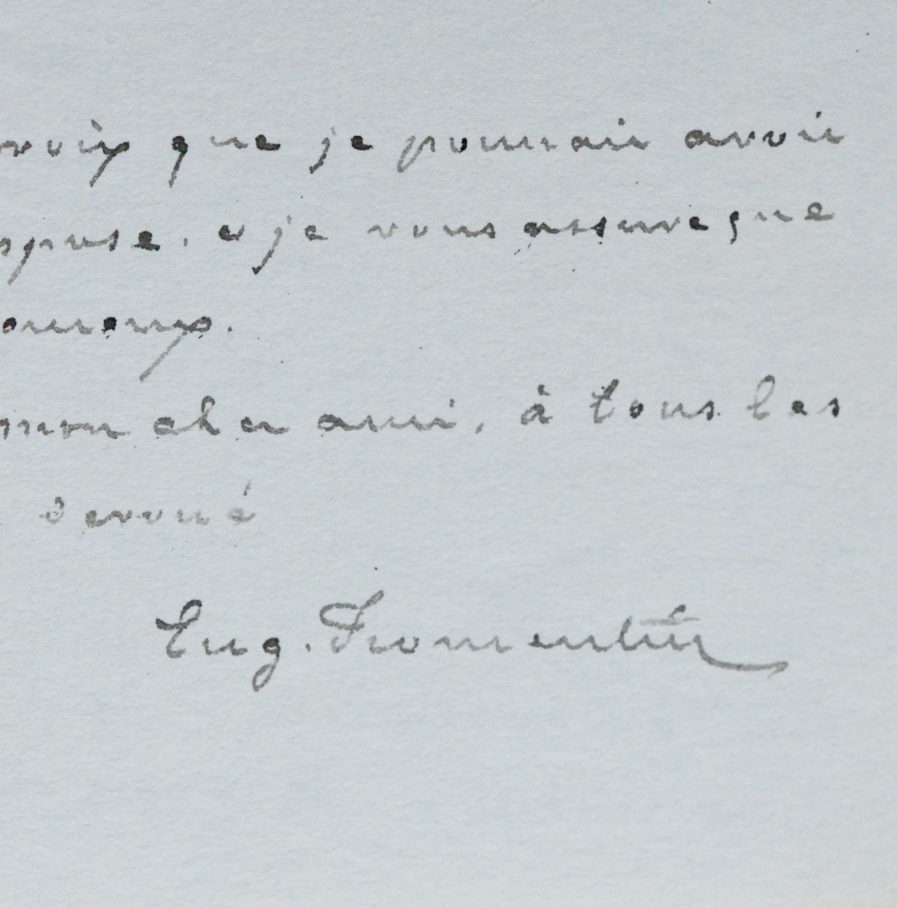 voix que je pourrais avoir
spose. et je vous assure que
mon cher ami, à tous les
dévoué
Eug. Fromentin